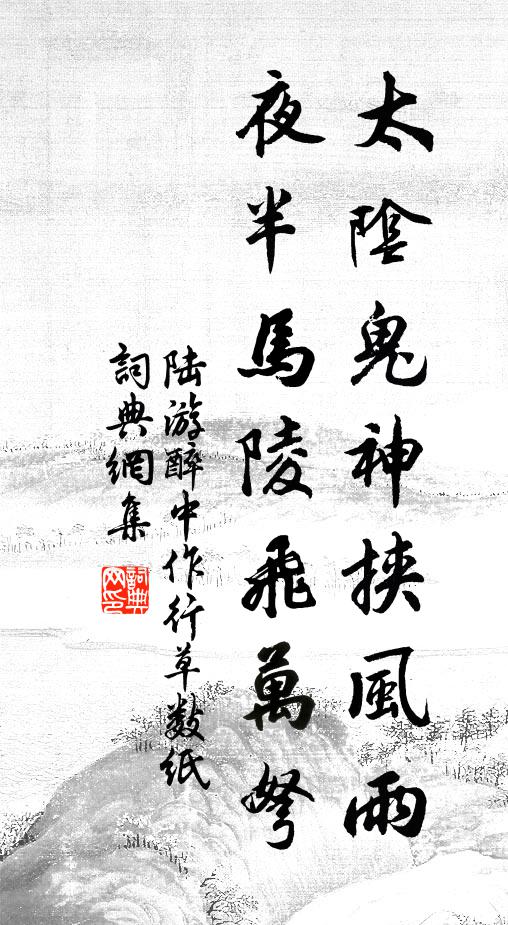 太陰鬼神挾風雨
夜半馬陵飛萬弩
陆游醉中作行草数纸
詞典網集
詞典网印